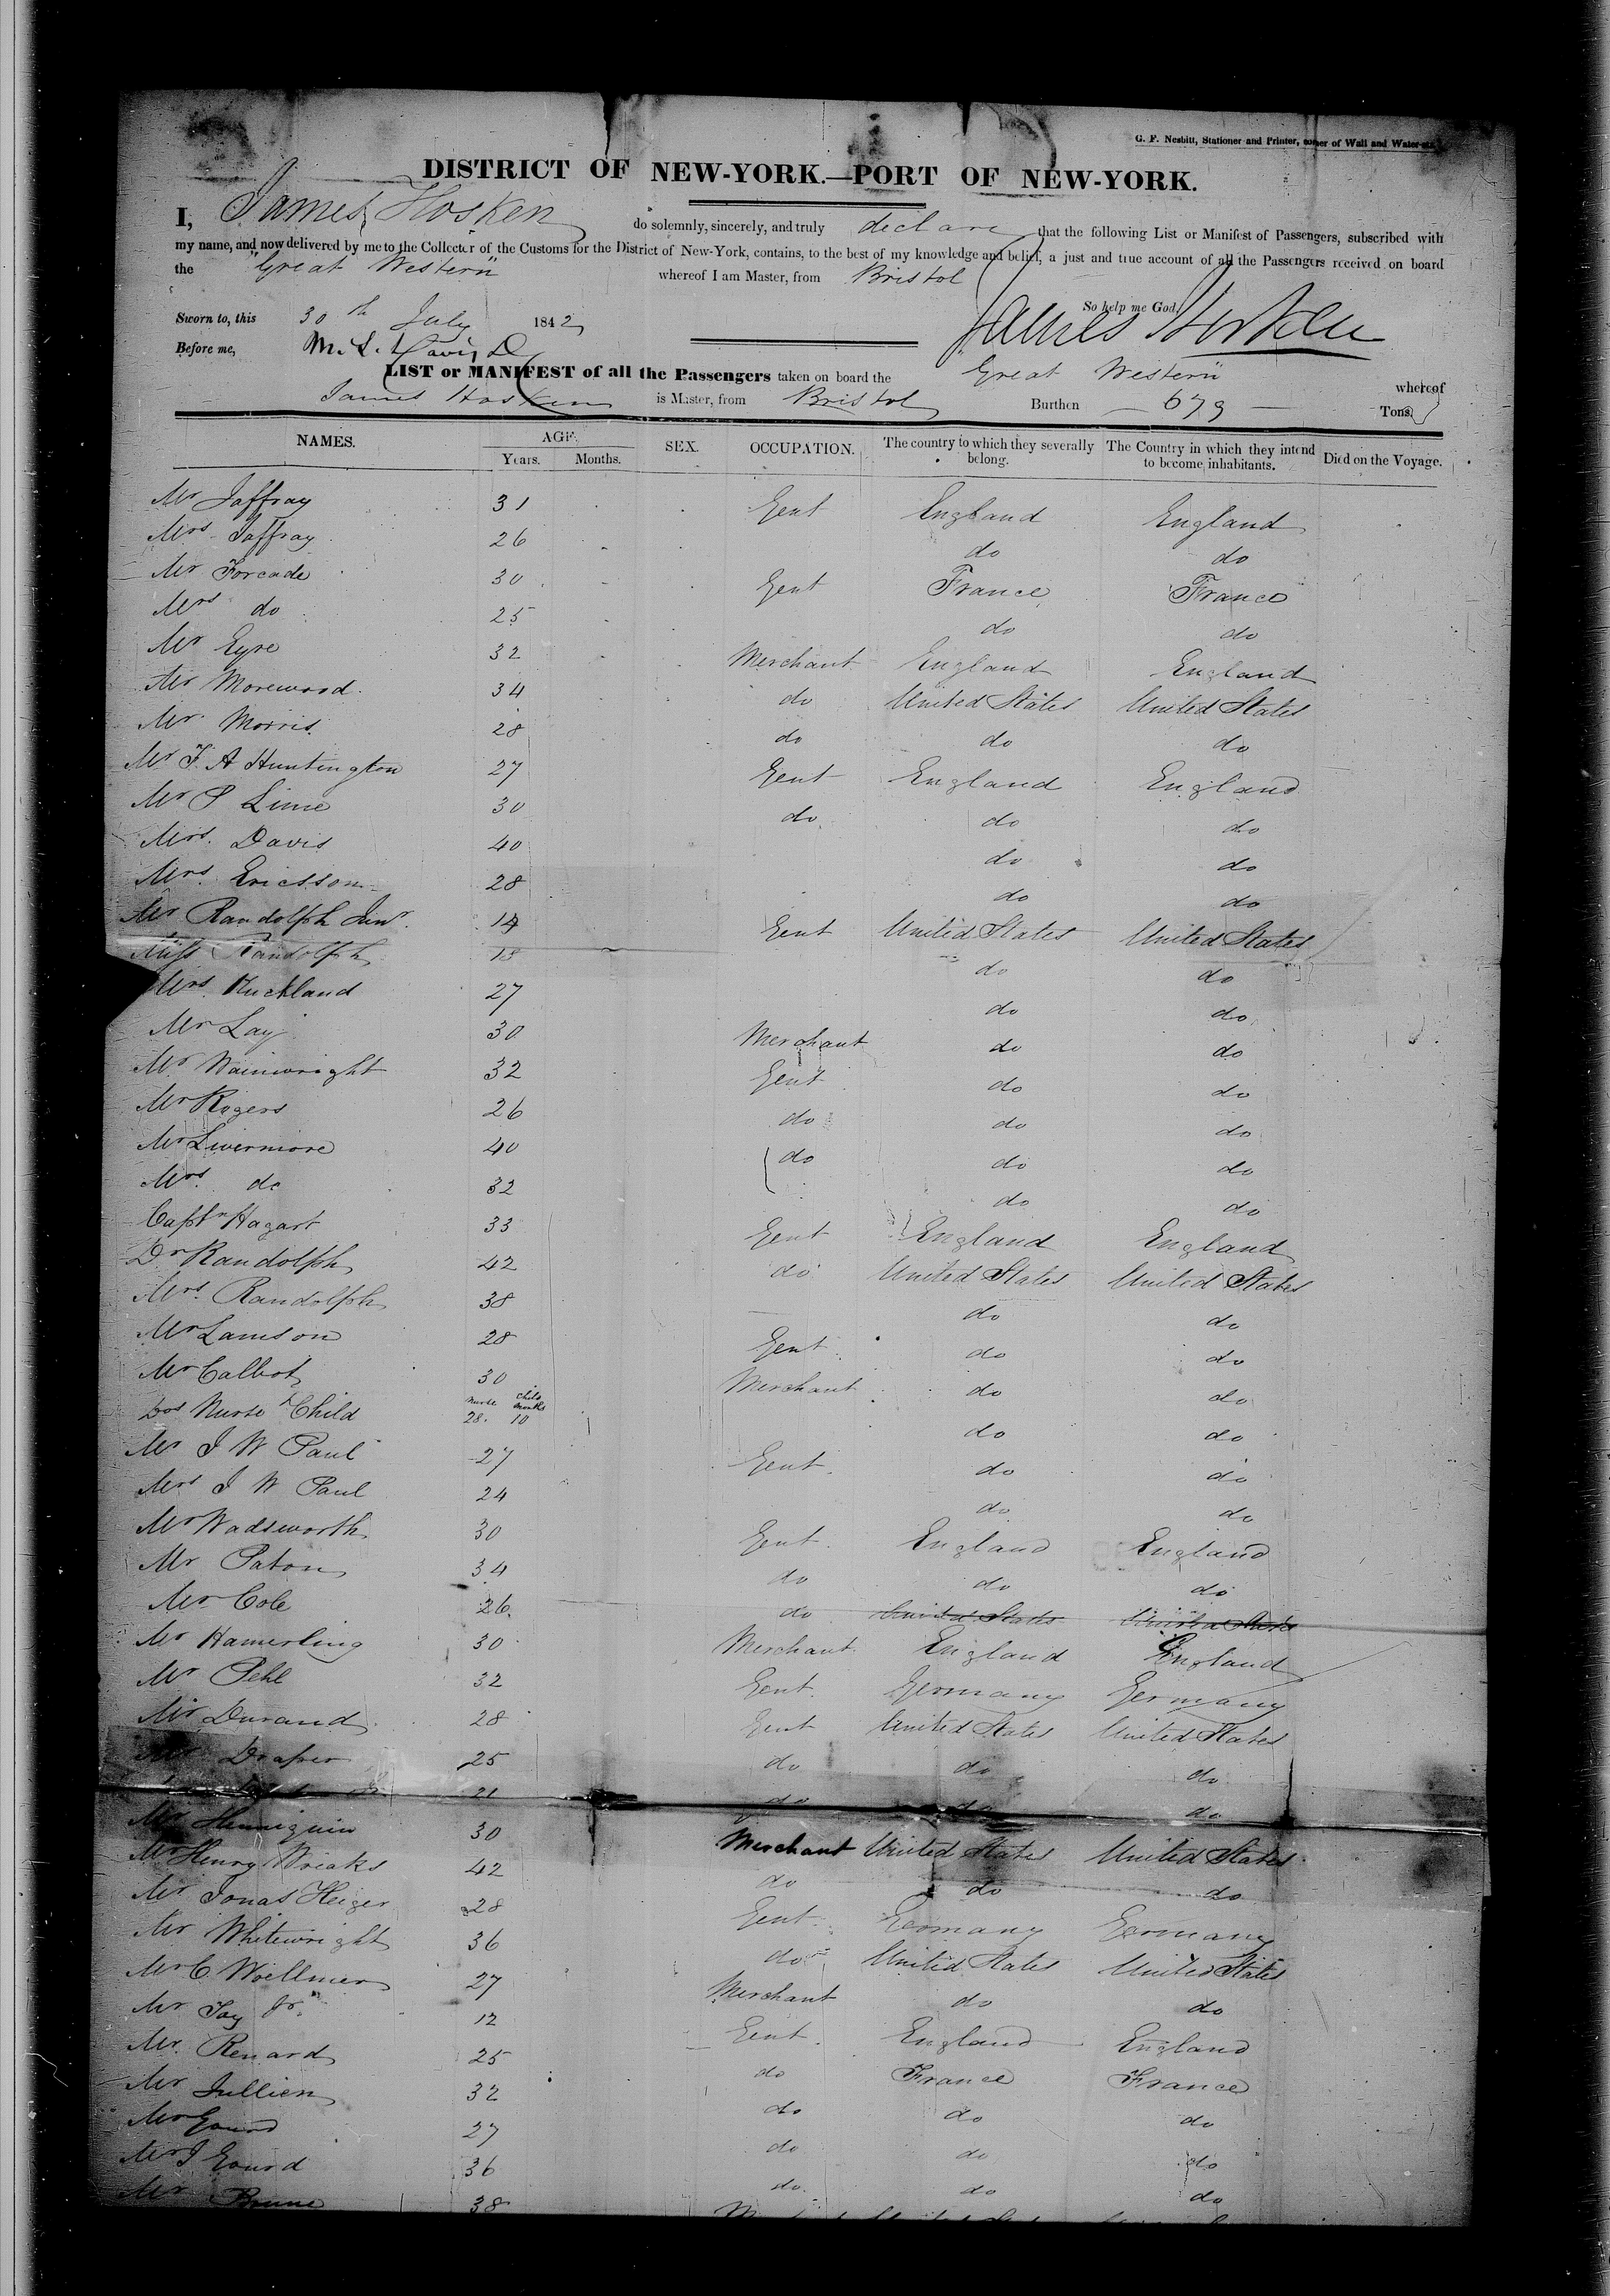 G. F. Nesbitt, Stationer and Printer, corner of Wall and Water-sts.
DISTRICT OF NEW-YORK.—PORT OF NEW-YORK.
I, James Hosken do solemnly, sincerely, and truly declare that the following List or Manifest of Passengers, subscribed with
my name, and now delivered by me to the Collector of the Customs for the District of New-York, contains, to the best of my knowledge and belief, a just and true account of all the Passengers received on board
the "Great Western" whereof I am Master, from Bristol
So help me God,
Sworn to, this 30th July 1842 James Hosken
Before me,
LIST or MANIFEST of all the Passengers taken on board the Great Western whereof
James Hosken is Master, from Bristol Burthen — 679 — Tons.
NAMES. AGE. Years. Months. SEX. OCCUPATION. The country to which they severally belong. The Country in which they intend to become inhabitants. Died on the Voyage.
Mr Jaffray 31 Gent England England
Mrs Jaffray 26 do do
Mr Forcade 30 Gent France France
Mrs do 25 do do
Mr Eyre 32 Merchant England England
Mr Morewood 34 do United States United States
Mr Morris 28 do do do
Mr F. A Huntington 27 Gent England England
Mr S 30 do do do
Mrs. Davis 40 do do
Mrs. Ericsson 28 do do
Mr Randolph Junr. 14 Gent United States United States
Miss Randolph 18 do do
Mrs. 27 do do
Mr Lay 30 Merchant do do
Mr Wainwright 32 Gent do do
Mr Rogers 26 do do do
Mr Livermore 40 do do do
Mrs. do 32 do do
Captn Hagart 33 Gent England England
Dr Randolph 42 do United States United States
Mrs. Randolph 38 do do
Mr Lamson 28 Gent do do
Mr Calbot 30 Merchant do do
Dos Nurse & Child nurse 28. child months 10 do do
Mr J W Paul 27 Gent. do do
Mrs J W Paul 24 do do
Mr Wadsworth 30 Gent. England England
Mr Paton 34 do do do
Mr Cole 26 do United States United States
Mr Hamerling 30 Merchant England England
Mr Pehl 32 Gent. Germany Germany
Mr Durand 28 Gent United States United States
Mr Draper 25 do do do
21 do do do
Mr Hennequin 30 Merchant United States United States
Mr Henry Wreaks 42 do do do
Mr Jonas Heizer 28 Gent. Germany Germany
Mr Whitewright 36 do United States United States
Mr C. Woellmer 27 Merchant do do
Mr Jay Jr. 12 Gent. England England
Mr. Renard 25 do France France
Mr Jullien 32 do do do
Mr Gourd 27 do do do
Mr J Gourd 36 do. do do
Mr Brune 38